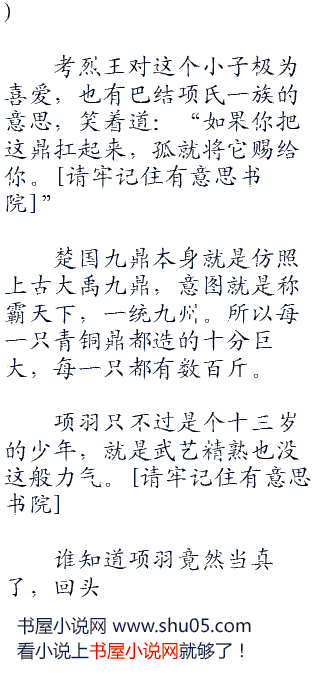 )
考烈王对这个小子极为
喜爱，也有巴结项氏一族的
意思，笑着道：“如果你把
这鼎扛起来，孤就将它赐给
你。[请牢记住有意思书
院]”
楚国九鼎本身就是仿照
上古大禹九鼎，意图就是称
霸天下，一统九州。所以每
一只青铜鼎都造的十分巨
大，每一只都有数百斤。
项羽只不过是个十三岁
的少年，就是武艺精熟也没
这般力气。[请牢记住有意思
书院]
谁知道项羽竟然当真
了，回头
书屋小说网 www.shu05.com
看小说上书屋小说网就够了！